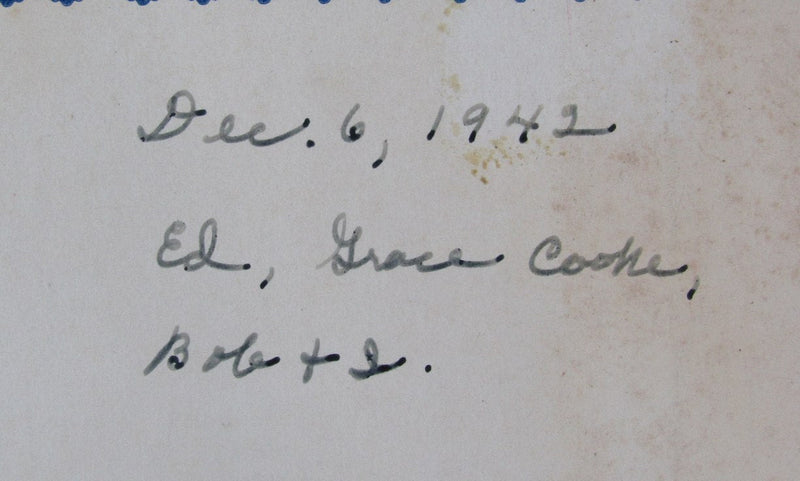 Dec. 6, 1942
Ed, Grace Cooke,
Bob + I.